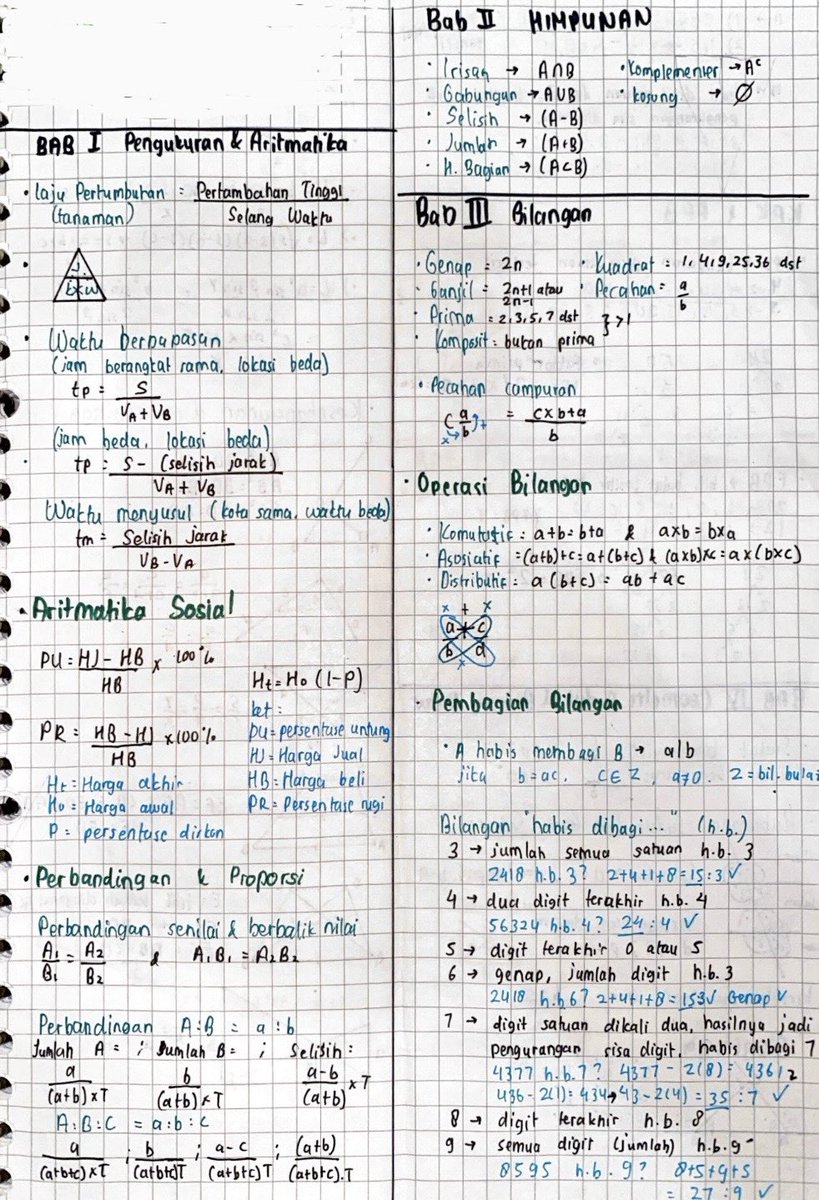 BAB I Pengukuran & Aritmatika
• laju Pertumbuhan = Pertambahan Tinggi
(tanaman) Selang Waktu
J
b x w
• Waktu berpapasan
(jam berangkat sama, lokasi beda)
tp = S
VA + VB
(jam beda, lokasi beda)
• tp = S - (selisih jarak)
VA + VB
Waktu menyusul (kota sama, waktu beda)
tm = Selisih jarak
VB - VA
• Aritmatika Sosial
PU = HJ - HB x 100%
HB
Ht = Ho (1-P)
PR = HB - HJ x 100%
HB
ket:
PU = persentase untung
HJ = Harga Jual
HB = Harga beli
PR = Persentase rugi
Ht = Harga akhir
Ho = Harga awal
P = persentase diskon
• Perbandingan & Proporsi
Perbandingan senilai & berbalik nilai
A1 = A2 & A1 B1 = A2 B2
B1 B2
Perbandingan A:B = a:b
Jumlah A = ; Jumlah B = ; Selisih :
a b a-b
(a+b) x T (a+b) x T (a+b) x T
A:B:C = a:b:c
a ; b ; a-c ; (a+b)
(a+b+c) x T (a+b+c)T (a+b+c)T (a+b+c).T
Bab II HIMPUNAN
• Irisan → A∩B • Komplementer → Aᶜ
• Gabungan → A∪B • kosong → Ø
• Selisih → (A-B)
• Jumlah → (A+B)
• H. Bagian → (A⊂B)
Bab III Bilangan
• Genap = 2n • Kuadrat = 1,4,9,25,36 dst
• Ganjil = 2n+1 atau • Pecahan = a
2n-1 b
• Prima = 2,3,5,7 dst } >1
• Komposit = bukan prima
• Pecahan campuran
C a = c x b + a
b b
x +
• Operasi Bilangan
• Komutatif = a+b = b+a & axb = bxa
• Asosiatif = (a+b)+c = a+(b+c) & (axb)xc = ax(bxc)
• Distributif = a (b+c) = ab + ac
x + x
a + c
b d
x
• Pembagian Bilangan
• A habis membagi B → a|b
jika b = ac, C∈Z, a≠0. Z = bil. bula
Bilangan "habis dibagi..." (h.b.)
3 → jumlah semua satuan h.b. 3
2418 h.b. 3? 2+4+1+8 = 15 : 3 ✓
4 → dua digit terakhir h.b. 4
56324 h.b. 4? 24 : 4 ✓
5 → digit terakhir 0 atau 5
6 → genap, jumlah digit h.b. 3
2418 h.b 6? 2+4+1+8 = 153✓ Genap ✓
7 → digit satuan dikali dua, hasilnya jadi
pengurangan sisa digit, habis dibagi 7
4377 h.b. 7? 4377 - 2(8) = 43612
436 - 2(1) = 434 → 43 - 2(4) = 35 : 7 ✓
8 → digit terakhir h.b. 8
9 → semua digit (jumlah) h.b. 9
8595 h.b. 9? 8+5+9+5
= 27 : 9 ✓